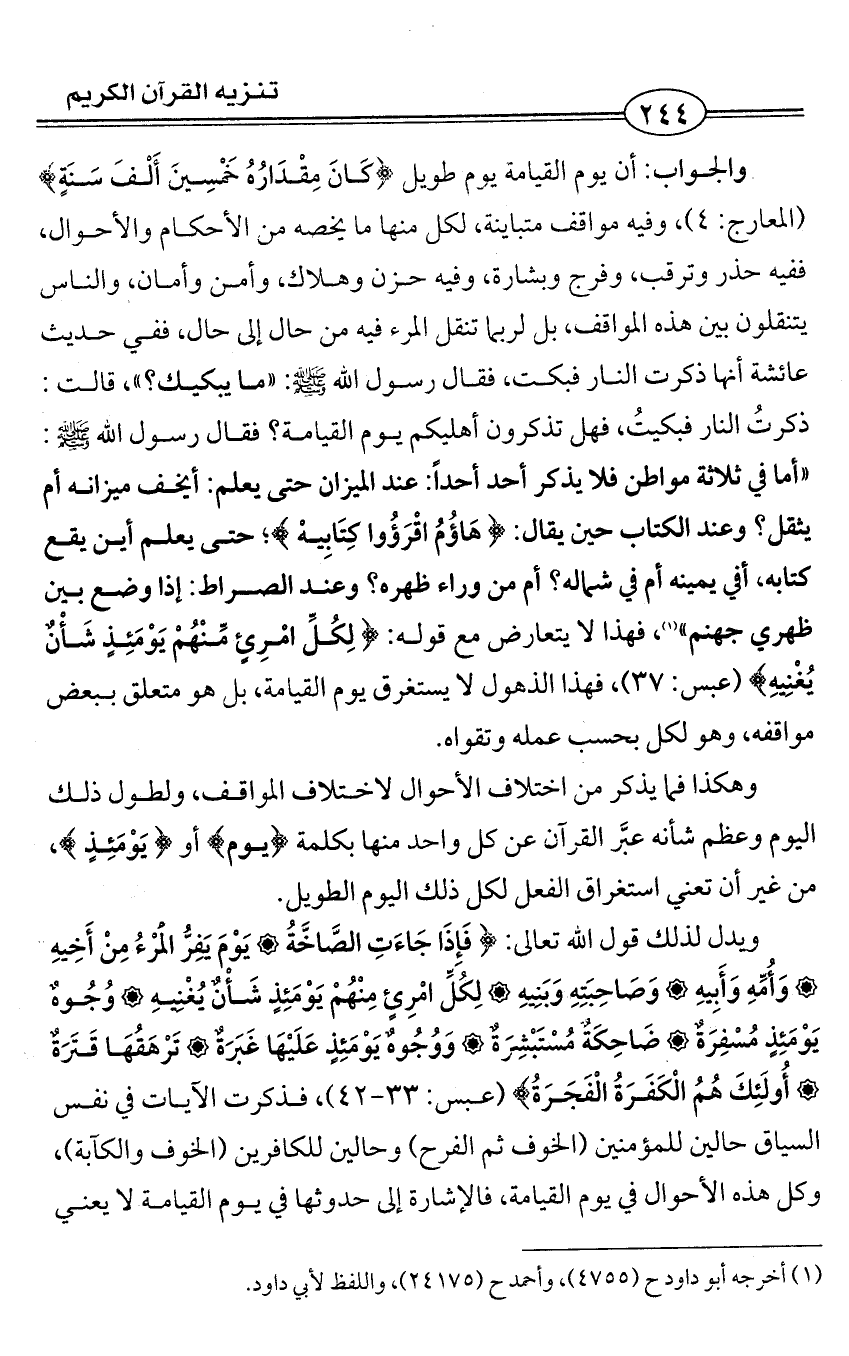 تنزيه القرآن الكريم
٢٤٤
والجواب: أن يوم القيامة يوم طويل ﴿كَانَ مِقْدَارُهُ خَمْسِينَ أَلْفَ سَنَةٍ﴾
(المعارج: ٤)، وفيه مواقف متباينة، لكل منها ما يخصه من الأحكام والأحوال،
ففيه حذر وترقب، وفرج وبشارة، وفيه حزن وهلاك، وأمن وأمان، والناس
يتنقلون بين هذه المواقف، بل لربما تنقل المرء فيه من حال إلى حال، ففي حديث
عائشة أنها ذكرت النار فبكت، فقال رسول الله ﷺ: «ما يبكيك؟»، قالت :
ذكرتُ النار فبكيتُ، فهل تذكرون أهليكم يوم القيامة؟ فقال رسول الله ﷺ :
«أما في ثلاثة مواطن فلا يذكر أحد أحداً: عند الميزان حتى يعلم: أيخف ميزانه أم
يثقل؟ وعند الكتاب حين يقال: ﴿ هَاؤُمُ اقْرَؤُوا كِتَابِيهْ ﴾؛ حتى يعلم أين يقع
كتابه، أفي يمينه أم في شماله؟ أم من وراء ظهره؟ وعند الصراط: إذا وضع بين
ظهري جهنم»(١)، فهذا لا يتعارض مع قوله: ﴿ لِكُلِّ امْرِئٍ مِّنْهُمْ يَوْمَئِذٍ شَأْنٌ
يُغْنِيهِ﴾ (عبس: ٣٧)، فهذا الذهول لا يستغرق يوم القيامة، بل هو متعلق ببعض
مواقفه، وهو لكل بحسب عمله وتقواه.
وهكذا فما يذكر من اختلاف الأحوال لاختلاف المواقف، ولطول ذلك
اليوم وعظم شأنه عبَّر القرآن عن كل واحد منها بكلمة ﴿يوم﴾ أو ﴿ يَوْمَئِذٍ ﴾،
من غير أن تعني استغراق الفعل لكل ذلك اليوم الطويل.
ويدل لذلك قول الله تعالى: ﴿ فَإِذَا جَاءَتِ الصَّاخَّةُ ۞ يَوْمَ يَفِرُّ الْمَرْءُ مِنْ أَخِيهِ
۞ وَأُمِّهِ وَأَبِيهِ ۞ وَصَاحِبَتِهِ وَبَنِيهِ ۞ لِكُلِّ امْرِئٍ مِنْهُمْ يَوْمَئِذٍ شَأْنٌ يُغْنِيهِ ۞ وُجُوهٌ
يَوْمَئِذٍ مُسْفِرَةٌ ۞ ضَاحِكَةٌ مُسْتَبْشِرَةٌ ۞ وَوُجُوهٌ يَوْمَئِذٍ عَلَيْهَا غَبَرَةٌ ۞ تَرْهَقُهَا قَتَرَةٌ
۞ أُولَئِكَ هُمُ الْكَفَرَةُ الْفَجَرَةُ﴾ (عبس: ٣٣-٤٢)، فذكرت الآيات في نفس
السياق حالين للمؤمنين (الخوف ثم الفرح) وحالين للكافرين (الخوف والكآبة)،
وكل هذه الأحوال في يوم القيامة، فالإشارة إلى حدوثها في يوم القيامة لا يعني
(١) أخرجه أبو داود ح (٤٧٥٥)، وأحمد ح (٢٤١٧٥)، واللفظ لأبي داود.